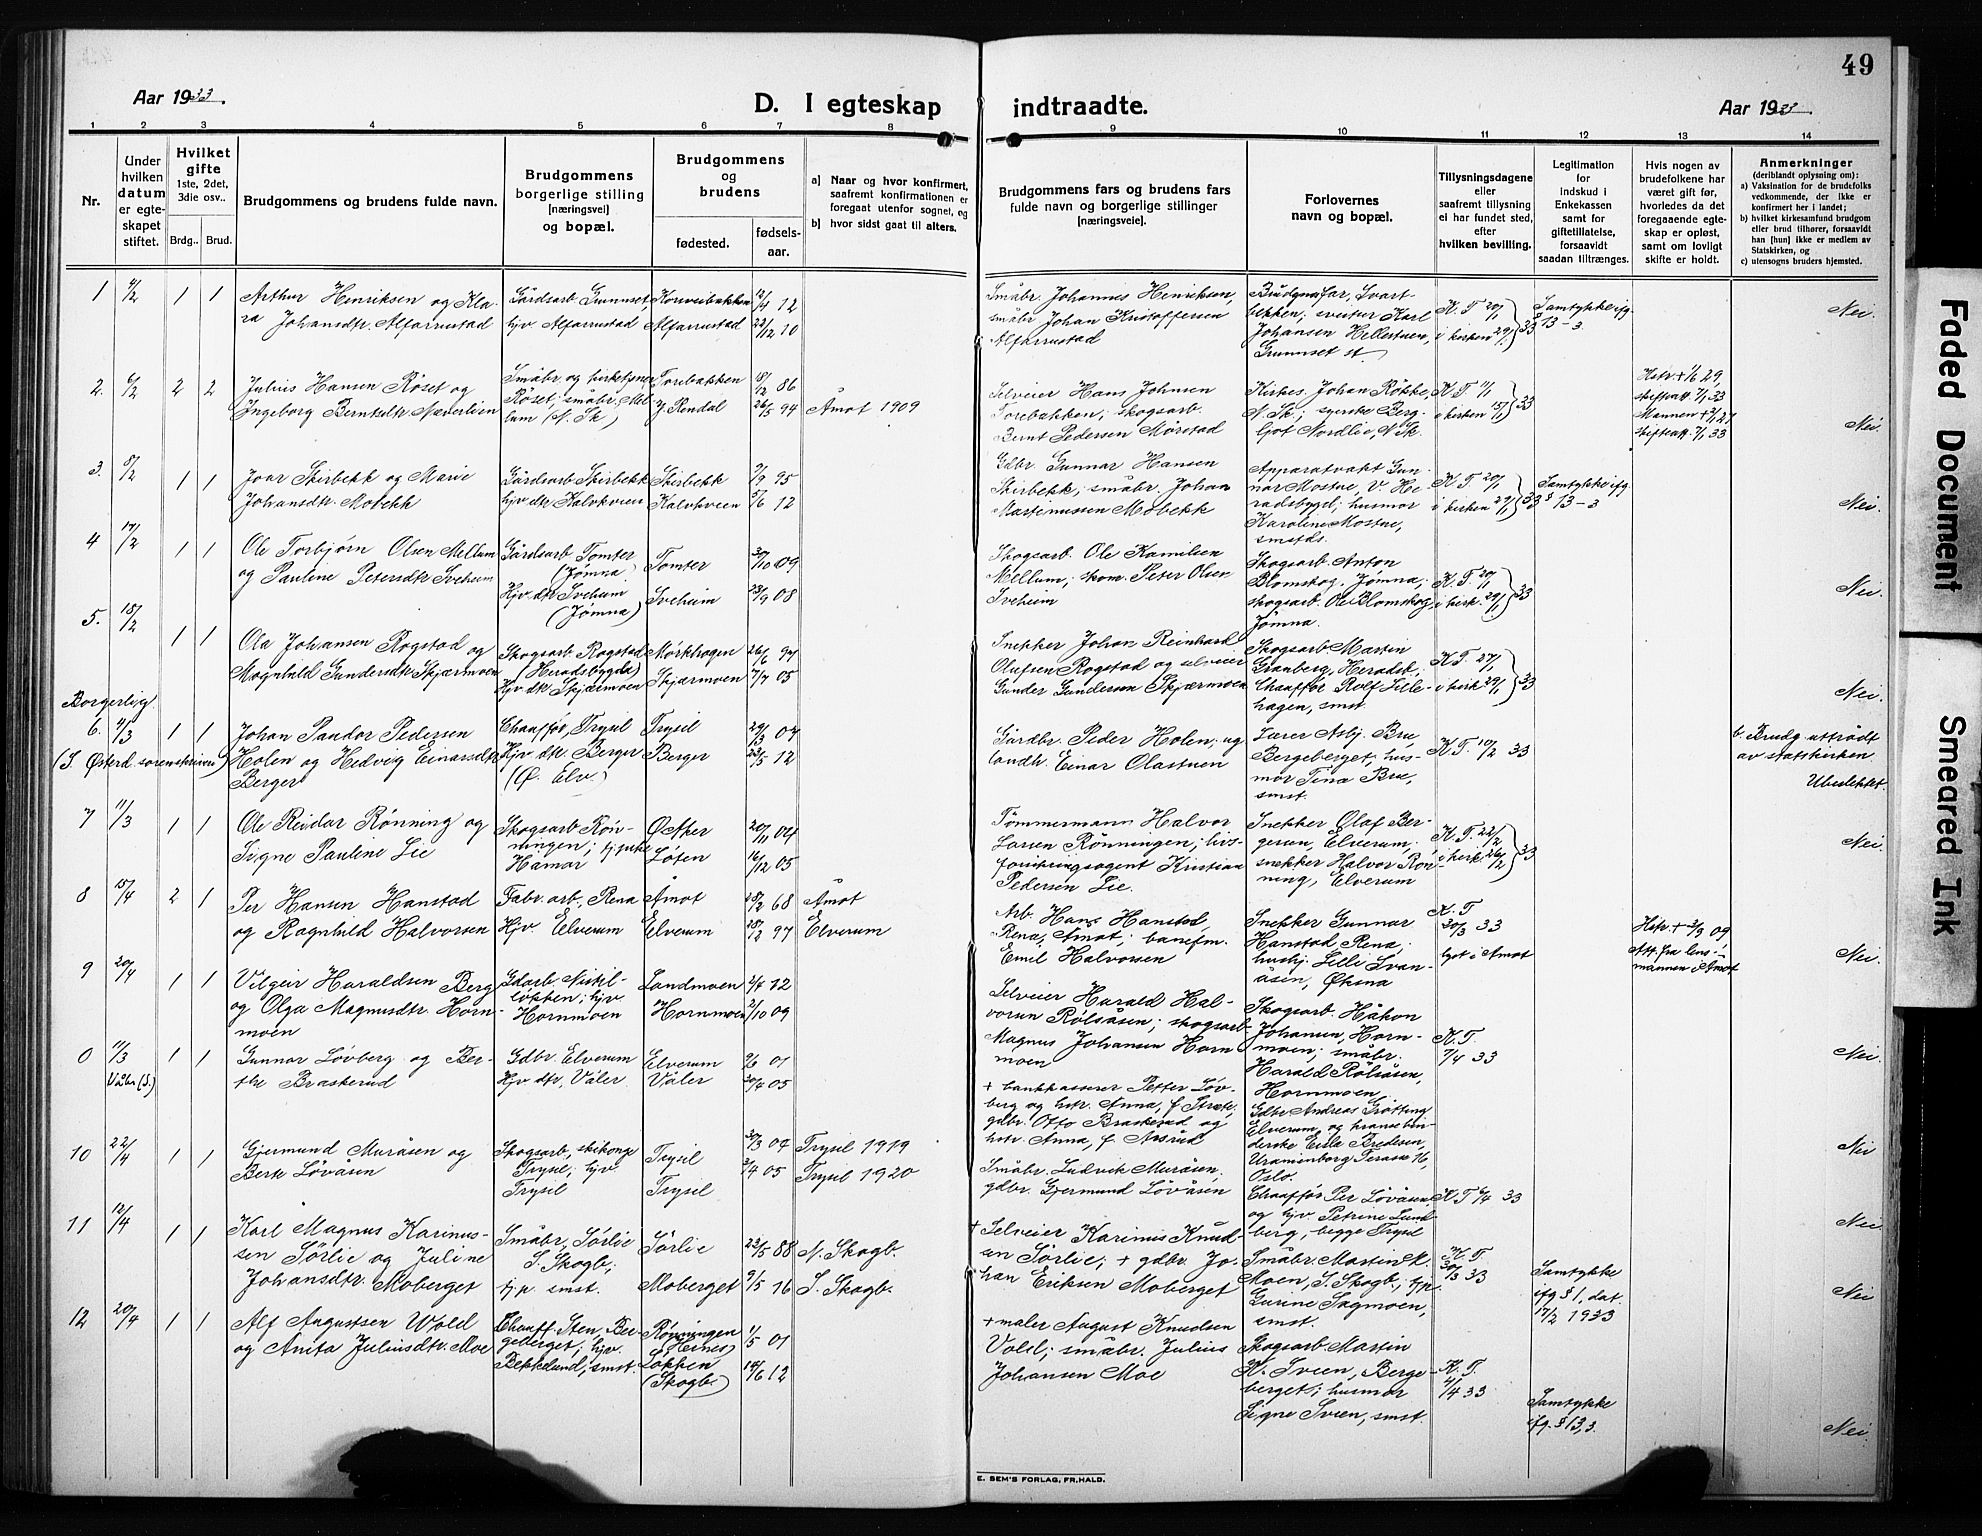 49
Aar 1933.
D. I egteskap indtraadte.
Aar 1933
1 2 3 4 5 6 7 8 9 10 11 12 13 14
Nr.
Under hvilken datum er egteskapet stiftet.
Hvilket gifte 1ste, 2det, 3die osv..
Brdg.. Brud.
Brudgommens og brudens fulde navn.
Brudgommens borgerlige stilling [næringsvei] og bopæl.
Brudgommens og brudens
fødested.
fødsels-aar.
a] Naar og hvor konfirmert, saafremt konfirmationen er foregaat utenfor sognet, og
b] hvor sidst gaat til alters.
Brudgommens fars og brudens fars fulde navn og borgerlige stillinger [næringsveie].
Forlovernes navn og bopæl.
Tillysningsdagene eller saafremt tillysning ei har fundet sted, efter hvilken bevilling.
Legitimation for indskud i Enkekassen samt for giftetillatelse, forsaavidt saadan tiltrænges.
Hvis nogen av brudefolkene har været gift før, hvorledes da det foregaaende egteskap er opløst, samt om lovligt skifte er holdt.
Anmerkninger (deriblandt oplysning om):
a) Vaksination for de brudefolks vedkommende, der ikke er konfirmert her i landet;
b) hvilket kirkesamfund brudgom eller brud tilhører, forsaavidt han [hun] ikke er medlem av Statskirken, og
c) utensogns bruders hjemsted.
1 1 1
Arthur Henriksen og Kla-
ra Johansdtr. Alfarrustad
Gårdsarb. Grunnset,
hjv Alfarrustad
Alfarrustad
12
22/12 10
Småbr. Johannes Henriksen,
småbr Johan Kristoffersen
Alfarrustad
Johansen Hellestuen,
Grunnset st.
K. T. 20/1
i kirken 29/1 } 33
Samtykke ifg.
§ 13-3
Nei.
2. 6/2 2 2
Julius Hansen Røset og
Ingeborg Berntsdtr.
Torebakken
Y. Rendal
18/12 86
26/5 94
Åmot 1909
Selveier Hans Johnsen
Torebakken; skogsarb.
Bernt Pedersen Mørstad
Kirkes. Johan Røkke,
N. Sk.; syerske Berg-
ljot Nordlie, N. Sk.
K. T. 11/1
i kirken 15/1 } 33
Hstr. + 1/6 29,
skifteatt. 7/1 33
Mannen + 2/1 27
skifteatt. 7/1 33
Nei.
3. 8/2 1 1
Joar Skirbekk og Marie
Johansdtr. Mobekk
Gårdsarb. Skirbekk
hjv dtr. Kalvkveen
Skirbekk
Kalvkveen
7/9 95
5/6 12
Gdbr. Gunnar Hansen
Skirbekk; småbr. Johan
Martinussen Mobekk
Apparatvakt Gun-
nar Mostue, V. He-
radsbygd; husmor
Karoline Mostue,
smstds.
K. T. 20/1
i kirken 29/1 } 33
Samtykke ifg
§ 13-3
Nei.
4 17/2 1 1
Ole Torbjørn Olsen Mellum
og Pauline Petersdtr Sveheim
Gårdsarb. Tomter
(Jømna)
Hjv. dtr Sveheim
(Jømna)
Tomter
Sveheim
30/10 09
23/9 08
Skogsarb. Ole Kamilsen
Mellum; skom. Peter Olsen
Sveheim
Skogsarb. Anton
Blomskog, Jømna;
skogsarb. Ole Blomskog,
Jømna.
K. T. 20/1
i kirk. 29/1 } 33
Nei.
5. 18/2 1 1
Ola Johansen Rogstad og
Magnhild Gundersdtr Skjærmoen
Skogsarb. Rogstad
(Heradsbygda)
Hjv dtr Skjærmoen
Mørkhagen
Skjærmoen
26/6 97
7/7 05
Snekker Johan Reinhard
Olufsen Rogstad og selveier
Gunder Gundersen Skjærmoen
Skogsarb Martin
Granberg, Heradsb.;
Chauffør Rolf Lille-
hagen, smst.
K. T. 27/1
i kirk 29/1 } 33
Nei.
Borgerlig
6. 4/3 1 1
(S. Østerd. sorenskriveri)
Johan Sandor Pedersen
Holen og Hedvig Einarsdtr
Berger
Chauffør, Trysil
Hjv. dtr. Berger
(Ø. Elv.)
Trysil
Berger
29/3 07
23/5 12
Gårdbr. Peder Holen; og
landh. Einar Olastuen
Lærer Asbj. Bru
Bergeberget, hus-
mor Tina Bru,
smst.
K. T. 10/2 33
b. Brudg. uttrådt
av statskirken.
Ubeslektet.
7 11/3 1 1
Ole Reidar Rønning og
Signe Pauline Lie
Skogsarb Røn-
ningen;
Hamar
Løten
20/11 04
16/12 05
Tømmermann Halvor
Larsen Rønningen; livs-
forsikringsagent Kristian
Pedersen Lie.
Snekker Olaf Ber-
gersen, Elverum;
snekker Halvor Røn-
ning, Elverum
K. T. 22/2
i kirk 26/2 } 33
Nei.
8 15/4 2 1
Per Hansen Hanstad
og Ragnhild Halvorsen
Fabr. arb., Rena
Hjv. Elverum
Åmot
Elverum
28/2 68
18/2 97
Åmot
Elverum
Arb. Hans Hanstad,
Rena, Åmot; banefm.
Emil Halvorsen
Snekker Gunnar
Hanstad, Rena;
husbj. Lilli Svan-
åsen, Øksna
K. T.
30/3 33
lyst i Åmot
Hstr. + 2/3 09
Att. fra lens-
mannen i Åmot
Nei.
9 20/4 1 1
Vilgeir Haraldsen Berg
og Olga Magnusdtr Horn-
moen
løkken; hjv.
Hornmoen
Landmoen
Hornmoen
2/4 12
2/10 09
Selveier Harald Hal-
vorsen Rølsåsen; skogsarb.
Magnus Johansen Horn-
moen
Skogsarb. Håkon
Johansen, Horn-
moen; småbr.
Harald Rølsåsen,
Hornmoen.
K. T.
7/4 33
Nei.
0 11/3 1 1
Våler (S.)
Gunnar Løvberg og Ber-
the Braskerud
Gdbr. Elverum
Hjv dtr, Våler
Elverum
Våler
9/6 01
30/4 05
+ bankkasserer Petter Løv-
berg og hstr. Anna, f. Stræte;
gdbr. Otto Braskerud og
hstr. Anna, f. Åsrud
Gdbr Andreas Grøtting
Elverum, og kransebin-
derske Eisla Bredesen,
Uranienborg Terasse 16,
Oslo.
Nei
10 22/4 1 1
Gjermund Muråsen og
Berte Løvåsen
Skogsarb,
Trysil; hjv.
Trysil
Trysil
Trysil
30/3 04
3/4 05
Trysil 1919
Trysil 1920
Småbr. Ludvik Muråsen.
gdbr. Gjermund Løvåsen
Chauffør Per Løvåsen,
og hjv. Petrine Lund-
berg, begge Trysil
K. T 6/4 33
Nei.
11 12/4 1 1
Karl Magnus Karinus-
sen Sørlie og Juline
Johansdtr. Moberget
Småbr., Sørlie
S. Skogb.;
tj.p. smst.
Sørlie
Moberget
23/5 88
9/5 16
N. Skogb.
S. Skogb.
+ Selveier Karinus Knud-
sen Sørlie; + gdbr. Jo-
han Eriksen Moberget
Småbr. Martin M.
Moen, S. Skogb.; tj.p.
Gurine Sagmoen,
smst.
K. T.
30/3 33
Samtykke
ifg § 1, dat.
17/2 1933
Nei
12 20/4 1 1
Alf Augustsen Wold
og Anita Juliusdtr. Moe
Chauff. Sten, Ber-
geberget; hjv.
Bekkelund, smst.
Rønningen
(Hernes)
Løkken
(Skogb.)
11/5 01
12
+ maler August Knudsen
Vold; småbr. Julius
Johansen Moe
Skogsarb Martin
K. Sveen, Berge-
berget; husmor
Signe Sveen, smst.
K. T.
4/4 33
Samtykke
ifg. § 13,3.
Nei.
E. SEM'S FORLAG, FR.HALD.
Faded Document
Smeared Ink